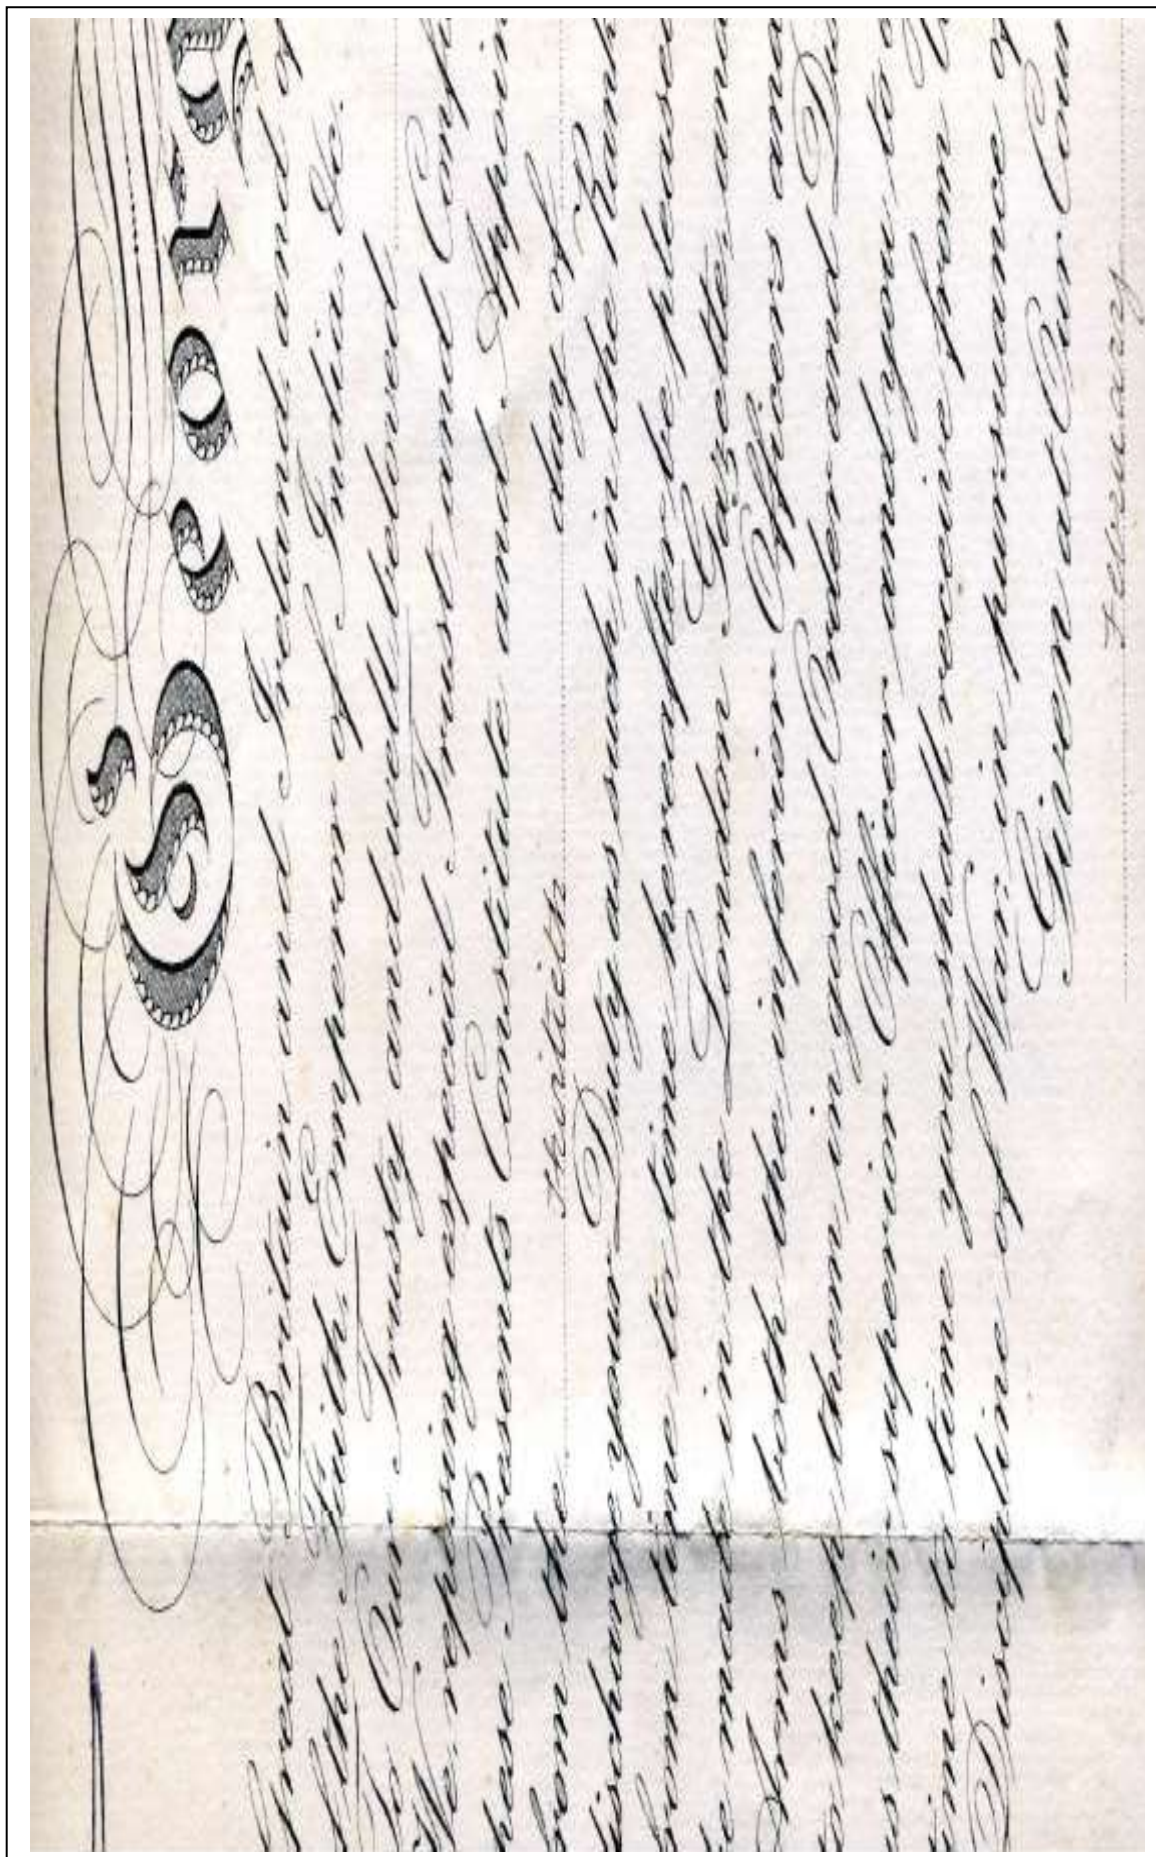 Georg
Great Britain and Ireland and o
the Faith, Emperor of India &c.
To Our Trusty and well beloved
We, reposing especial Trust and Conf
hese Presents Constitute and Appoin
from the thirtieth day of
ischarge your Duty as such in the Rank
from time to time hereafter be please
be made in the London Gazette, and
Arms both the inferior Officers and
to keep them in good Order and D
as their superior Officer and you to
time to time you shall receive from
Discipline of War, in pursuance o
Given at Our Cour
February